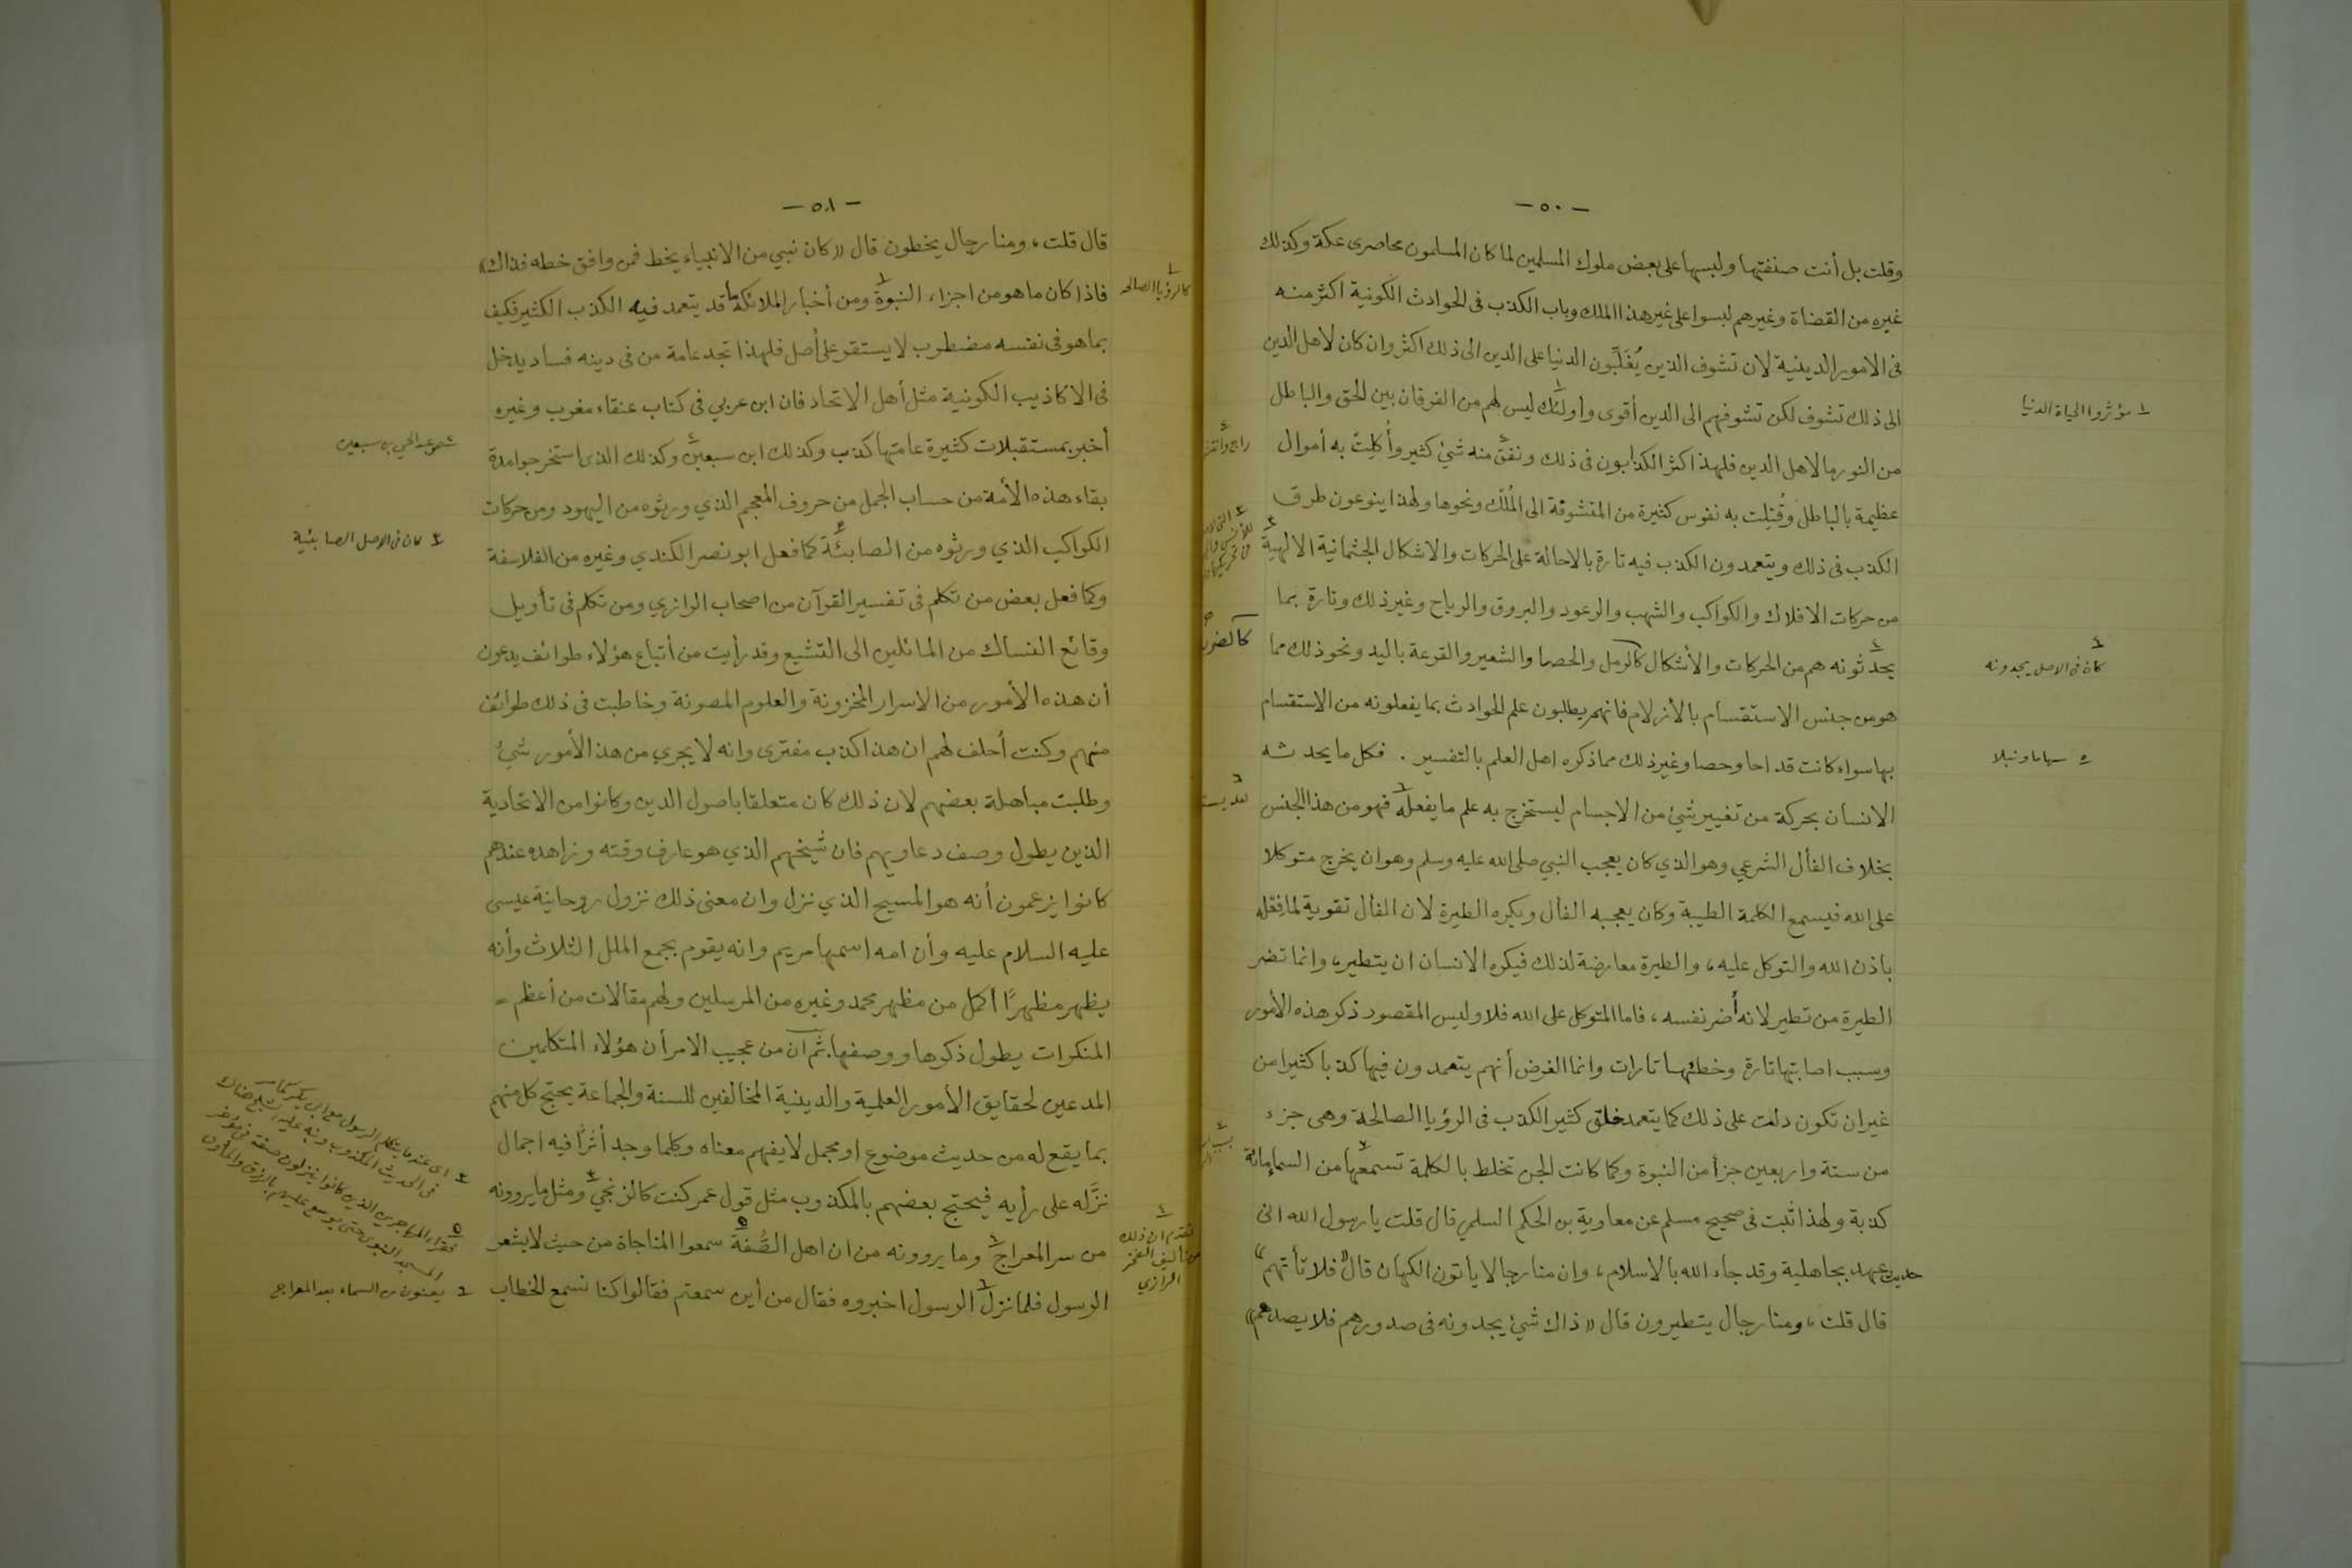 — ٥٠ —
وقلت بل أنت صنفتها ولبسها على بعض ملوك المسلمين لما كان المسلمون محاصرى عكة وكذلك
غيره من القضاة وغيرهم لبسوا على غير هذا الملك وباب الكذب فى الحوادث الكونية اكثر منه
فى الامور الدينية لان تشوف الذين يُغَلِّبون الدنيا على الدين الى ذلك اكثر وان كان لاهل الدين
الى ذلك تشوف لكن تشوفهم الى الدين أقوى وأولئك ليس لهم من الفرقان بين الحق والباطل
من النور ما لاهل الدين فلهذا اكثر الكذابون فى ذلك ونفق منه شئ كثير وأُكِلت به أموال
عظيمة بالباطل وقُتِلت به نفوس كثيرة من المتشوقة الى المُلك ونحوها ولهذا ينوعون طرق
الكذب فى ذلك ويتعمدون الكذب فيه تارة بالاحالة على الحركات والاشكال الجثمانية الالهية
من حركات الافلاك والكواكب والشهب والرعود والبروق والرياح وغير ذلك وتارة بما
يحدثونه هم من الحركات والأشكال كالرمل والحصا والشعير والقرعة باليد ونحو ذلك مما
هو من جنس الاستقسام بالأزلام فانهم يطلبون علم الحوادث بما يفعلونه من الاستقسام
بها سواء كانت قداحا وحصا وغير ذلك مما ذكره اهل العلم بالتفسير . فكل ما يحدثه
الانسان بحركة من تغيير شئ من الاجسام ليستخرج به علم ما يفعله فهو من هذا الجنس
بخلاف الفأل الشرعي وهو الذي كان يعجب النبي صلى الله عليه وسلم وهو ان يخرج متوكلا
على الله فيسمع الكلمة الطيبة وكان يعجبه الفأل ويكره الطيرة لان الفأل تقوية لما فعله
باذن الله والتوكل عليه، والطيرة معارضة لذلك فيكره الانسان ان يتطير، وانما تضر
الطيرة من تطير لانه أضر نفسه، فاما المتوكل على الله فلا وليس المقصود ذكر هذه الأمور
وسبب اصابتها تارة وخطئها تارات وانما الغرض أنهم يتعمدون فيها كذبا كثيرا من
غير ان تكون دلت على ذلك كما يتعمد خلق كثير الكذب فى الرؤيا الصالحة وهى جزء
من ستة واربعين جزأ من النبوة وكما كانت الجن تخلط بالكلمة تسمعها من السماء مائة
كذبة ولهذا ثبت فى صحيح مسلم عن معاوية بن الحكم السلمي قال قلت يا رسول الله انى
حديث عهد بجاهلية وقد جاء الله بالاسلام، وان منا رجالا يأتون الكهان قال «فلا تأتهم»
قال قلت، ومنا رجال يتطيرون قال «ذاك شئ يجدونه فى صدورهم فلا يصدهم»
١ مؤثروا الحياة الدنيا
٤ كان فى الاصل يجدونه
٥ سهاما ونبلا
— ٥١ —
قال قلت، ومنا رجال يخطون قال «كان نبي من الانبياء يخط فمن وافق خطه فذاك»
فاذا كان ما هو من اجزاء النبوة ومن أخبار الملائكة ما قد يتعمد فيه الكذب الكثير فكيف
بما هو فى نفسه مضطرب لا يستقر على أصل فلهذا تجد عامة من فى دينه فساد يدخل
فى الاكاذيب الكونية مثل أهل الاتحاد فان ابن عربي فى كتاب عنقاء مغرب وغيره
أخبر بمستقبلات كثيرة عامتها كذب وكذلك ابن سبعين وكذلك الذى استخرجوا مدة
بقاء هذه الأمة من حساب الجمل من حروف المعجم الذي ورثوه من اليهود ومن حركات
الكواكب الذي ورثوه من الصابئة كما فعل ابو نصر الكندي وغيره من الفلاسفة
وكما فعل بعض من تكلم فى تفسير القرآن من اصحاب الرازي ومن تكلم فى تأويل
وقائع النساك من المائلين الى التشيع وقد رأيت من أتباع هؤلاء طوائف يدعون
أن هذه الأمور من الاسرار المخزونة والعلوم المصونة وخاطبت فى ذلك طوائف
منهم وكنت أحلف لهم ان هذا كذب مفترى وانه لا يجري من هذ الأمور شئ
وطلبت مباهلة بعضهم لان ذلك كان متعلقا باصول الدين وكانوا من الاتحادية
الذين يطول وصف دعاويهم فان شيخهم الذي هو عارف وقته وزاهده عندهم
كانوا يزعمون أنه هو المسيح الذي نزل وان معنى ذلك نزول روحانية عيسى
عليه السلام عليه وأن امه اسمها مريم وانه يقوم بجمع الملل الثلاث وأنه
يظهر مظهرًا أكمل من مظهر محمد وغيره من المرسلين ولهم مقالات من أعظم
المنكرات يطول ذكرها ووصفها. ثم ان من عجيب الامر أن هؤلاء المتكلمين
المدعين لحقايق الأمور العلمية والدينية المخالفين للسنة والجماعة يحتج كل منهم
بما يقع له من حديث موضوع او مجمل لا يفهم معناه وكلما وجد أثرا فيه اجمال
نزَّله على رأيه فيحتج بعضهم بالمكذوب مثل قول عمر كنت كالزنجي ومثل ما يروونه
من سر المعراج وما يروونه من ان اهل الصُّفة سمعوا المناجاة من حيث لا يشعر
الرسول فلما نزل الرسول اخبروه فقال من أين سمعتم فقالوا كنا نسمع الخطاب
١ كالرؤيا الصالحة
٣ كان فى الاصل الصابئية
٤ اى عندما يتكلم الرسول مع ابى بكر
فى الحديث المكذوب
٥ فقراء المهاجرين الذين كانوا ينزلون صفة فى
المسجد النبوى حتى يوسع عليهم بالرزق
٦ يعنون من السماء بعد المعراج